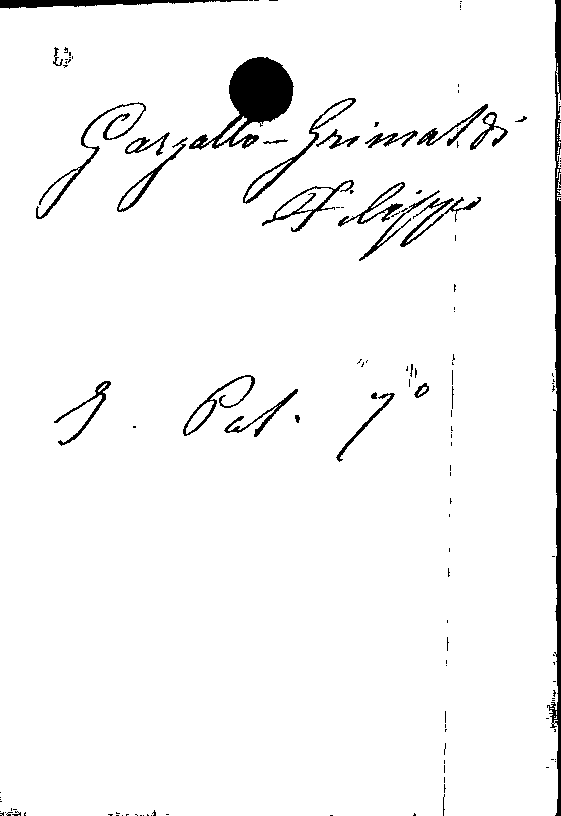 Gargallo-Grimaldi
Filippo
G. Pat. 7º